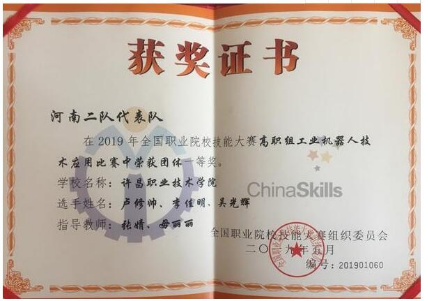 获奖证书
河南二队代表队
在2019年全国职业院校技能大赛高职组工业机器人技
术应用比赛中荣获团体一等奖。
学校名称：许昌职业技术学院
ChinaSkills
选手姓名：卢修帅、李佳明、吴光辉
指导教师：张婧、毋丽丽
全国职业院校技能大赛组织委员会
二〇一九年五月
编号：201901060